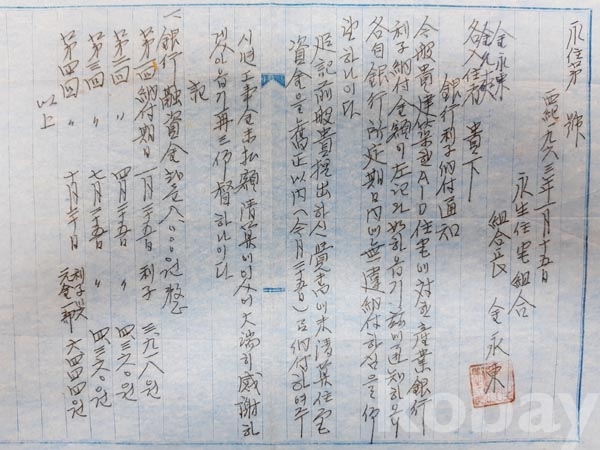 永住第 號
西紀一九六三年一月十五日
永生住宅組合
組合長 金永東
金永東
各入住者 貴下
銀行利子納付通知
今般貴建築코AID住宅에 対한 産業銀行
利子納付金額이 左記와 如하옵기 玆에 通知하오니
各自銀行所定期日內에 無違納付하심을 仰
望하나이다
追記 前般貴提出하신 覺書에 未清算住宅
資金을 舊正以內(今月二十五日)로 納付하여주
시면 工事金未払額清算에 있어 大端히 感謝하
겠아옵기 再三仰督하나이다
記
一、銀行融資金 八〇〇〇원整
第一回納付期日 一月二十五日 利子 三九二八원
第二回 〃 四月二十五日 〃 四三二〇원
第三回 〃 七月二十五日 〃 四三二〇원
第四回 〃 十月二十日 利子及元金一部 六四四四원
以上
kobay